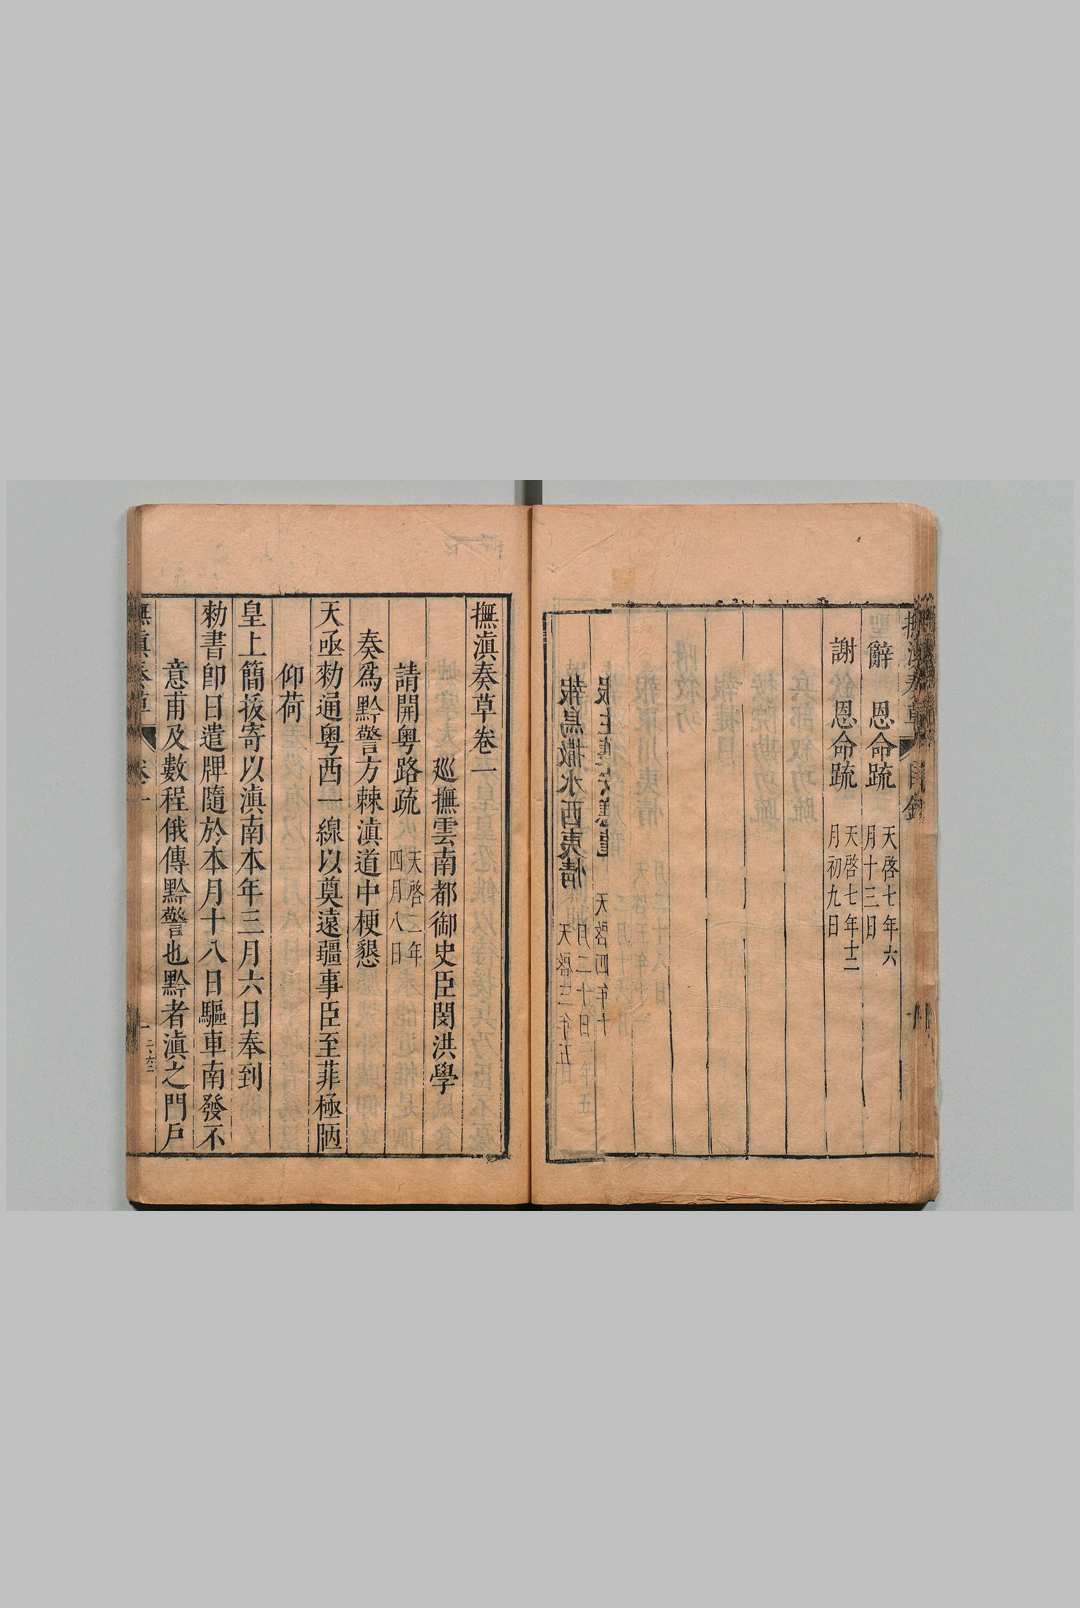 辭 恩命疏 天啓七年六月十三日
謝 恩命疏 天啓七年十二月初九日
報烏撒水西夷情 天啓三年五
撫滇奏草卷一
巡撫雲南都御史臣閔洪學
請開粵路疏 天啓二年四月八日
奏爲黔警方棘滇道中梗懇
天亟勑通粵西一線以奠遠疆事臣至菲極陋
仰荷
皇上簡拔寄以滇南本年三月六日奉到
勑書卽日遣牌隨於本月十八日驅車南發不
意甫及數程俄傳黔警也黔者滇之門戶
撫滇奏草 卷一